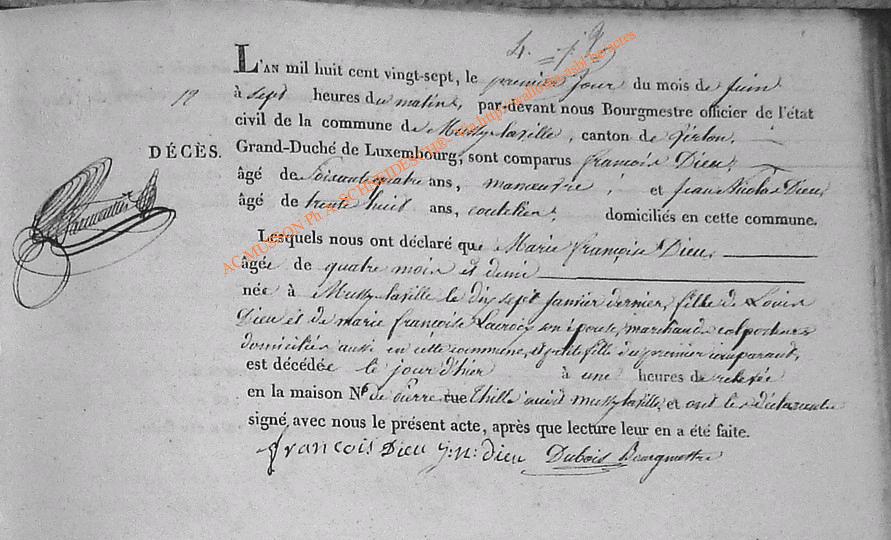 L'AN mil huit cent vingt-sept, le premier jour du mois de juin
19
à sept heures du matin, par-devant nous Bourgmestre officier de l'état
civil de la commune de Mussy-laville, canton de Virton,
DÉCÈS.
Grand-Duché de Luxembourg, sont comparus françois Dieu,
âgé de soixante quatre ans, manoeuvre, et jean Nicolas Dieu,
âgé de trente huit ans, coutelier, domiciliés en cette commune.
Lesquels nous ont déclaré que Marie françoise Dieu,
âgée de quatre mois et demi
née à Mussy-laville le dix sept janvier dernier, fille de Louis
Dieu et de marie françoise Lacroix son épouse, marchands colporteurs
domiciliés aussi en cette commune, et petite fille du premier comparant,
est décédée le jour d'hier à une heures de relevée
en la maison N° de pierre rue Thille audit mussy-laville, et ont les déclarants
signé avec nous le présent acte, après que lecture leur en a été faite.
françois Dieu j: n: dieu Dubois Bourgmestre
AC MUSSON Ph A. SCHNEIDESCH